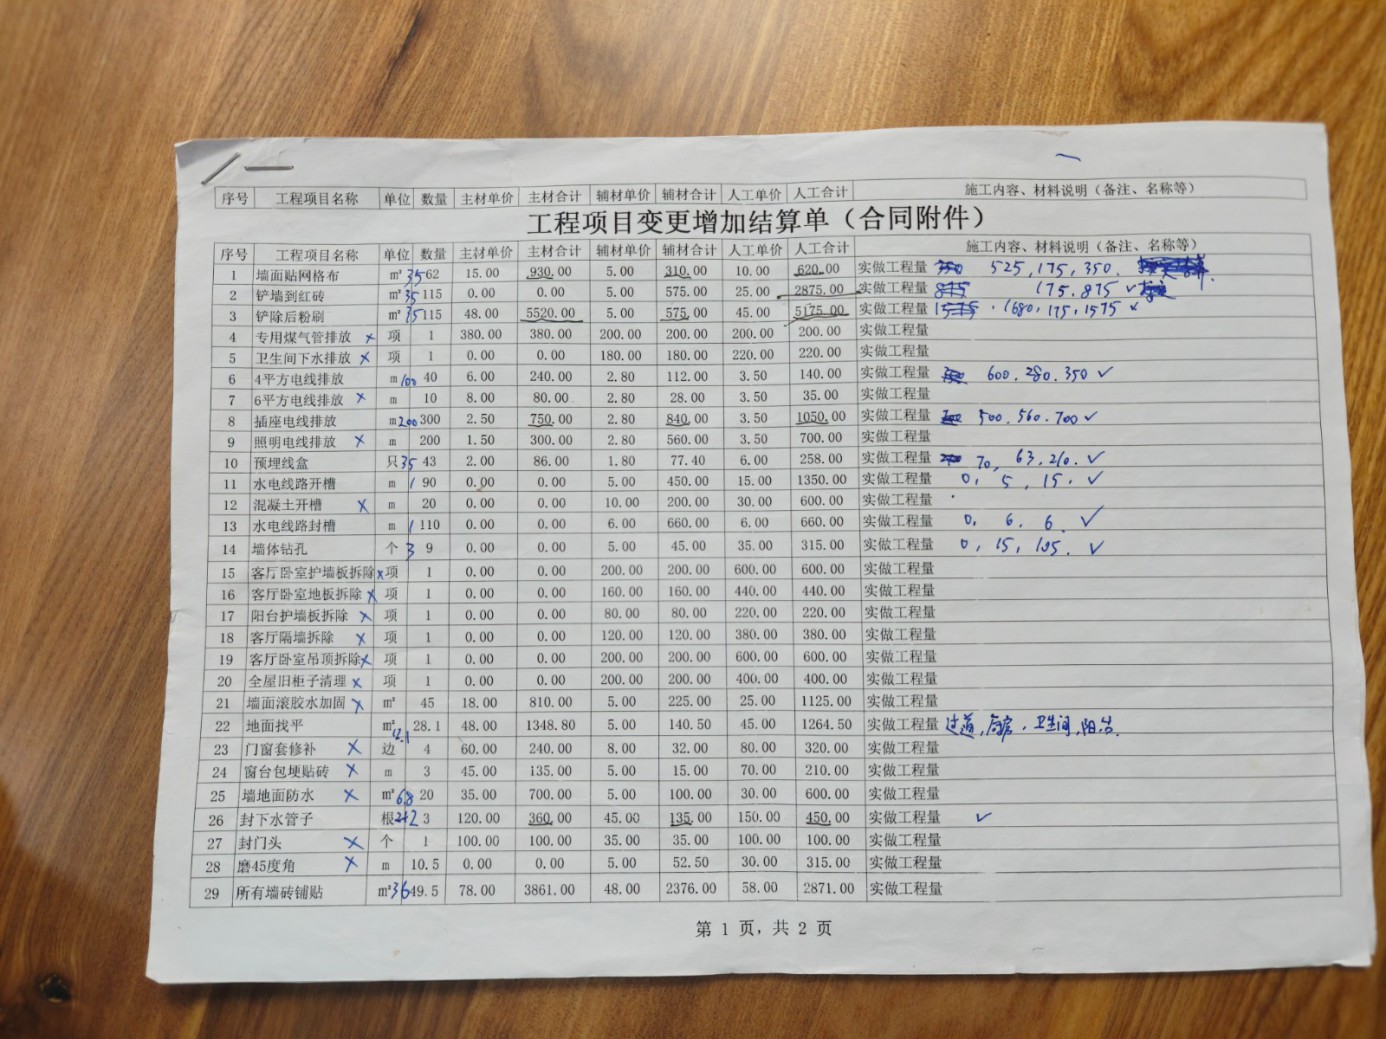 序号 工程项目名称 单位 数量 主材单价 主材合计 辅材单价 辅材合计 人工单价 人工合计 施工内容、材料说明（备注、名称等）
工程项目变更增加结算单（合同附件）
序号 工程项目名称 单位 数量 主材单价 主材合计 辅材单价 辅材合计 人工单价 人工合计 施工内容、材料说明（备注、名称等）
1 墙面贴网格布 m² 35 62 15.00 930.00 5.00 310.00 10.00 620.00 实做工程量 525,175,350.
2 铲墙到红砖 m² 35 115 0.00 0.00 5.00 575.00 25.00 2875.00 实做工程量 175.875 ✓
3 铲除后粉刷 m² 35 115 48.00 5520.00 5.00 575.00 45.00 5175.00 实做工程量 1680,175,1575 ✓
4 专用煤气管排放 × 项 1 380.00 380.00 200.00 200.00 200.00 200.00 实做工程量
5 卫生间下水排放 × 项 1 0.00 0.00 180.00 180.00 220.00 220.00 实做工程量
6 4平方电线排放 m 100 40 6.00 240.00 2.80 112.00 3.50 140.00 实做工程量 600.280.350 ✓
7 6平方电线排放 × m 10 8.00 80.00 2.80 28.00 3.50 35.00 实做工程量
8 插座电线排放 m 200 300 2.50 750.00 2.80 840.00 3.50 1050.00 实做工程量 500.560.700 ✓
9 照明电线排放 × m 200 1.50 300.00 2.80 560.00 3.50 700.00 实做工程量
10 预埋线盒 只 35 43 2.00 86.00 1.80 77.40 6.00 258.00 实做工程量 70, 63.210. ✓
11 水电线路开槽 m 1 90 0.00 0.00 5.00 450.00 15.00 1350.00 实做工程量 0, 5, 15. ✓
12 混凝土开槽 × m 20 0.00 0.00 10.00 200.00 30.00 600.00 实做工程量
13 水电线路封槽 m 1 110 0.00 0.00 6.00 660.00 6.00 660.00 实做工程量 0, 6. 6. ✓
14 墙体钻孔 个 3 9 0.00 0.00 5.00 45.00 35.00 315.00 实做工程量 0, 15, 105. ✓
15 客厅卧室护墙板拆除 × 项 1 0.00 0.00 200.00 200.00 600.00 600.00 实做工程量
16 客厅卧室地板拆除 × 项 1 0.00 0.00 160.00 160.00 440.00 440.00 实做工程量
17 阳台护墙板拆除 × 项 1 0.00 0.00 80.00 80.00 220.00 220.00 实做工程量
18 客厅隔墙拆除 × 项 1 0.00 0.00 120.00 120.00 380.00 380.00 实做工程量
19 客厅卧室吊顶拆除 × 项 1 0.00 0.00 200.00 200.00 600.00 600.00 实做工程量
20 全屋旧柜子清理 × 项 1 0.00 0.00 200.00 200.00 400.00 400.00 实做工程量
21 墙面滚胶水加固 × m² 45 18.00 810.00 5.00 225.00 25.00 1125.00 实做工程量
22 地面找平 m² 28.1 48.00 1348.80 5.00 140.50 45.00 1264.50 实做工程量 过道,厨房.卫生间,阳台.
23 门窗套修补 × 边 4 60.00 240.00 8.00 32.00 80.00 320.00 实做工程量
24 窗台包埂贴砖 × m 3 45.00 135.00 5.00 15.00 70.00 210.00 实做工程量
25 墙地面防水 × m² 68 20 35.00 700.00 5.00 100.00 30.00 600.00 实做工程量
26 封下水管子 根 2 3 120.00 360.00 45.00 135.00 150.00 450.00 实做工程量 ✓
27 封门头 × 个 1 100.00 100.00 35.00 35.00 100.00 100.00 实做工程量
28 磨45度角 × m 10.5 0.00 0.00 5.00 52.50 30.00 315.00 实做工程量
29 所有墙砖铺贴 m² 36 49.5 78.00 3861.00 48.00 2376.00 58.00 2871.00 实做工程量
第 1 页, 共 2 页